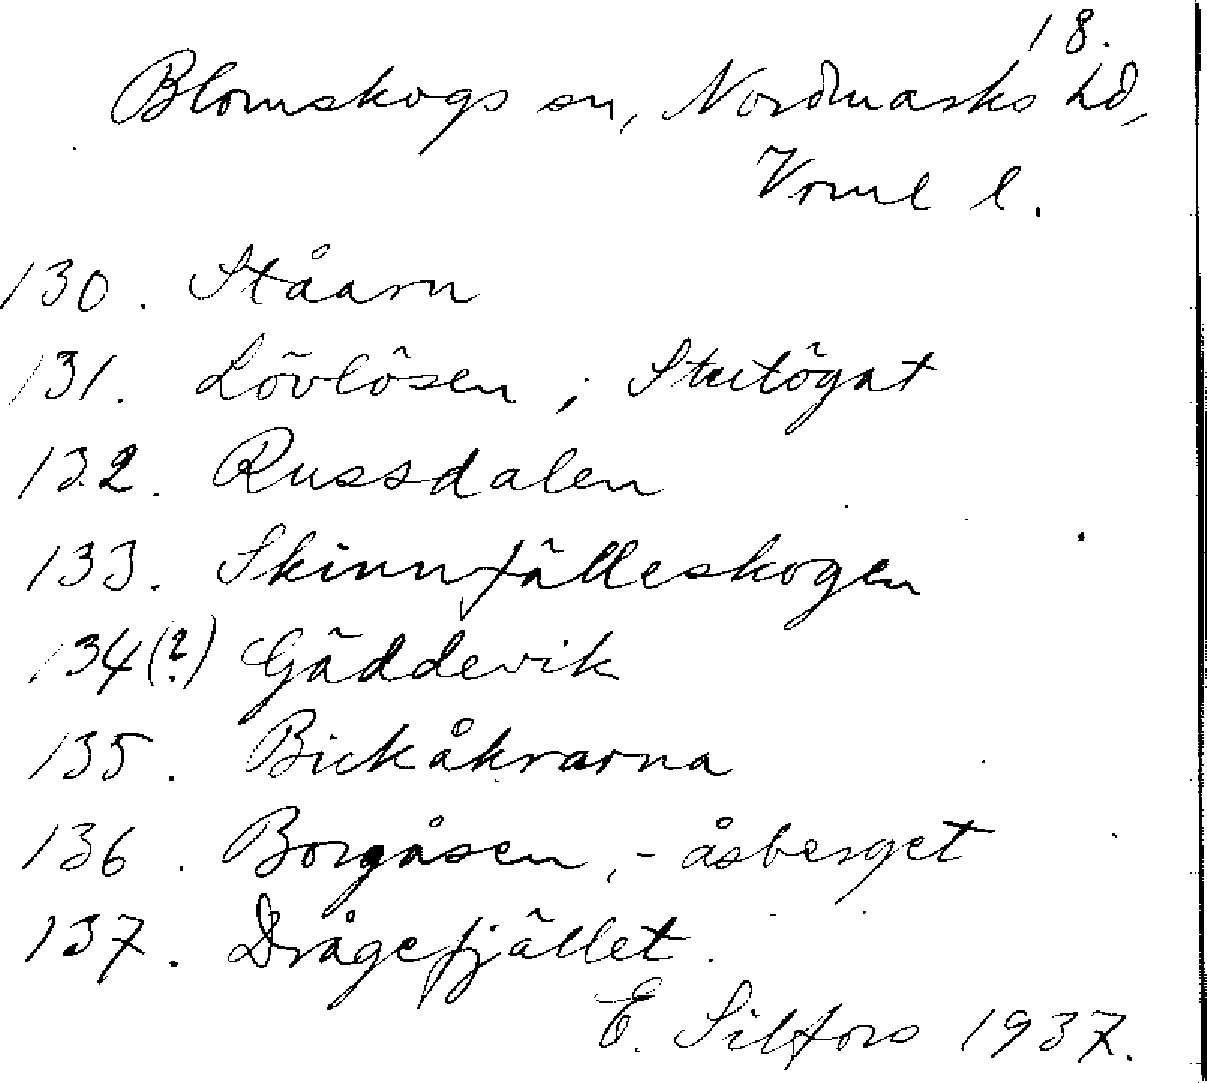 18.
Blomskogs sn, Nordmarks hd,
Vrml l.
130. Ståarn
131. Lövlösen; Stutögat
132. Russdalen
133. Skinnfälleskogen
134(?) Gäddevik
135. Bickåkrarna
136. Borgåsen, -åsberget
137. Drågefjället.
E. Silfors 1937.